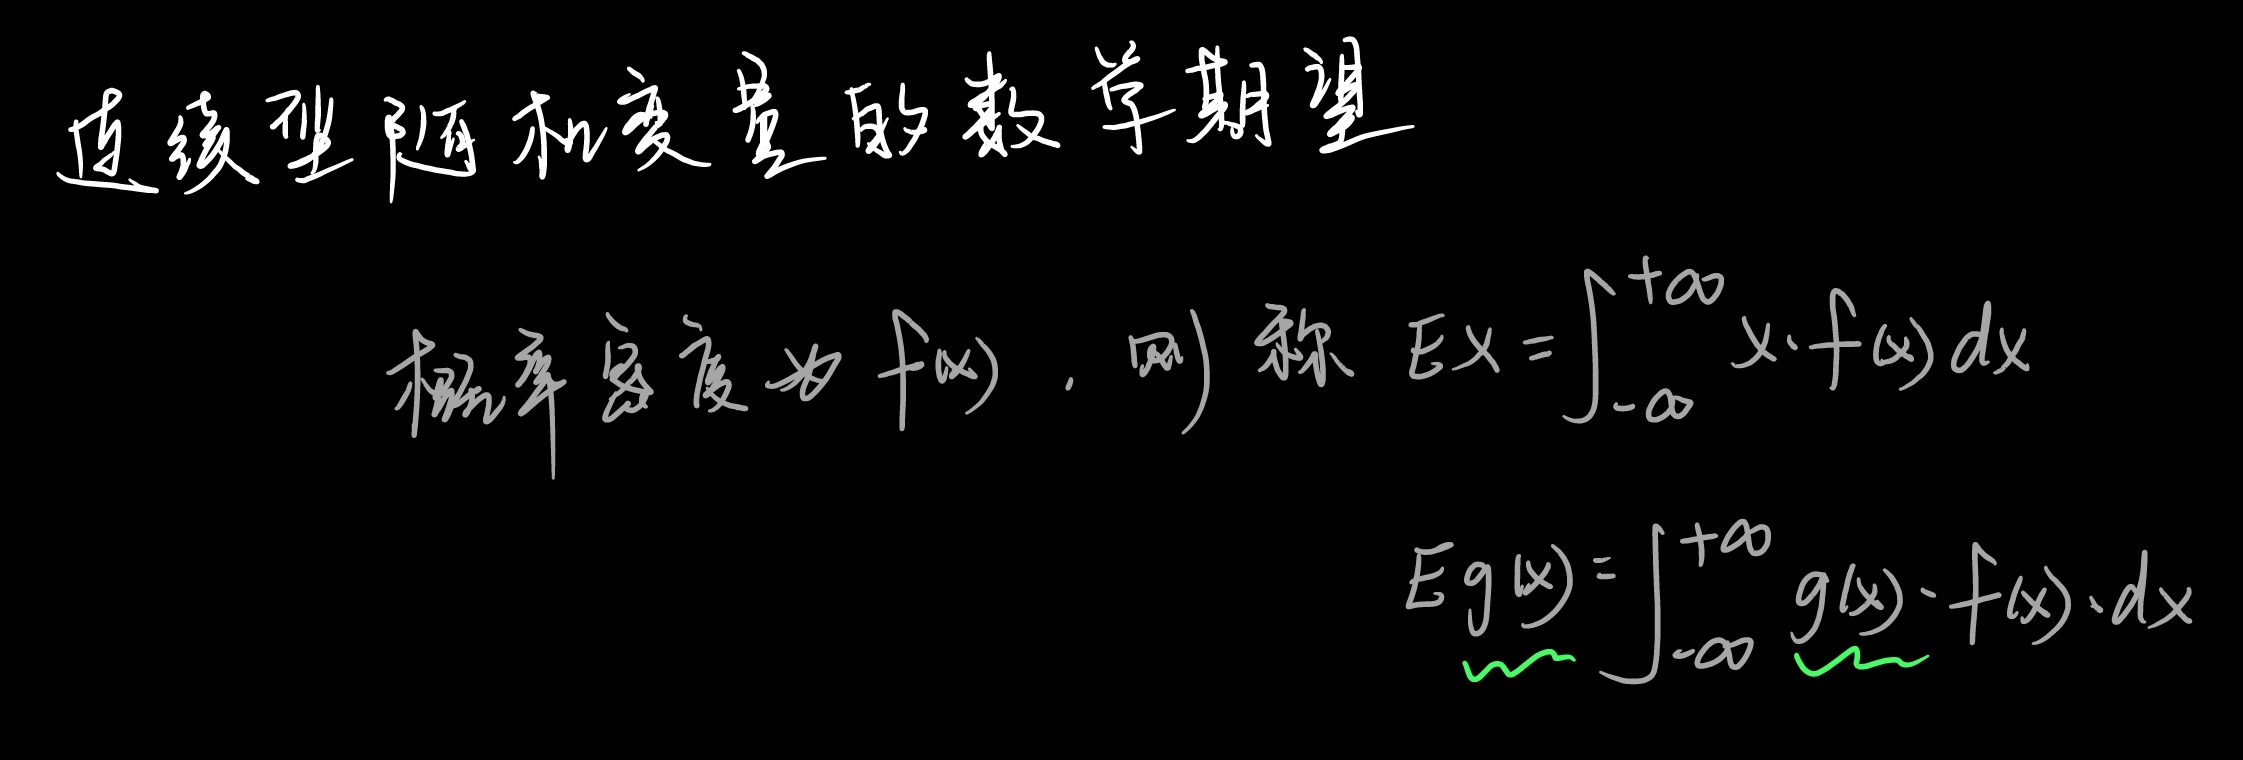 连续型随机变量的数学期望
概率密度为 f(x)，则称 EX = ∫_{-∞}^{+∞} x·f(x) dx
Eg(x) = ∫_{-∞}^{+∞} g(x)·f(x)·dx